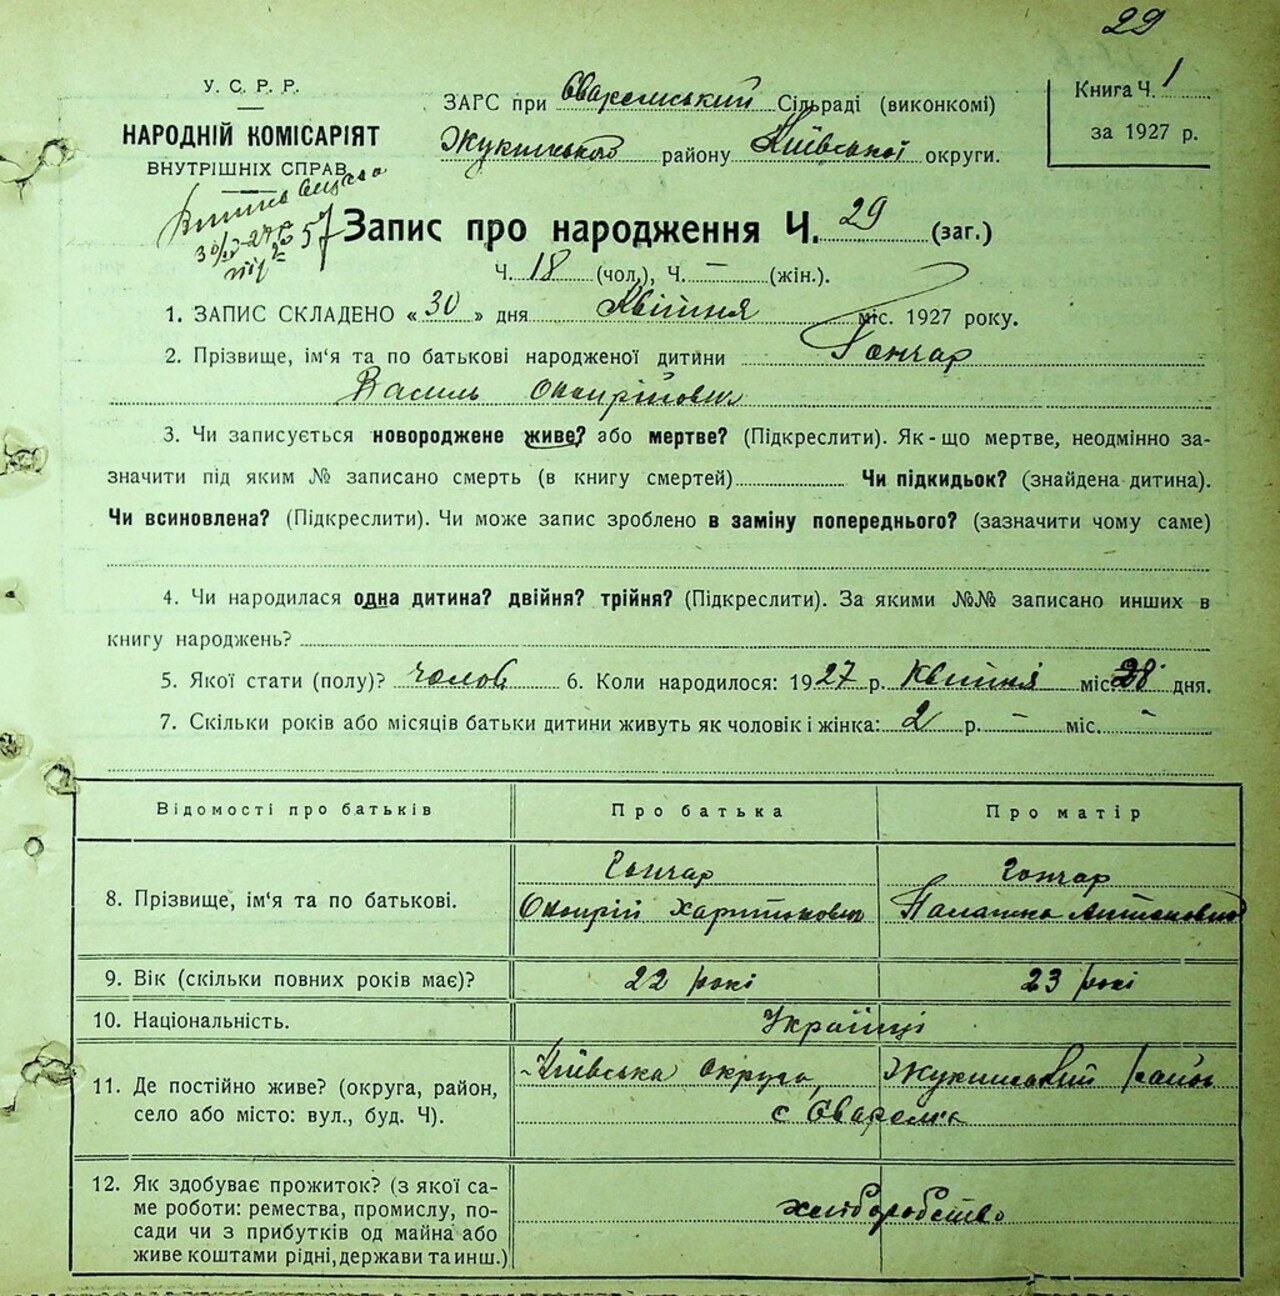 29
У. С. Р. Р.
НАРОДНІЙ КОМІСАРІЯТ
ВНУТРІШНІХ СПРАВ
ЗАГС при Сваремський Сільраді (виконкомі)
Жукинського району Київської округи.
Книга Ч. 1
за 1927 р.
Запис про народження Ч. 29 (заг.)
Ч. 18 (чол.), Ч. – (жін.).
1. ЗАПИС СКЛАДЕНО «30» дня Квітня міс. 1927 року.
2. Прізвище, ім'я та по батькові народженої дитини Гончар
Василь Онопрійович
3. Чи записується новороджене живе? або мертве? (Підкреслити). Як-що мертве, неодмінно за-
значити під яким № записано смерть (в книгу смертей) Чи підкидьок? (знайдена дитина).
Чи всиновлена? (Підкреслити). Чи може запис зроблено в заміну попереднього? (зазначити чому саме)
4. Чи народилася одна дитина? двійня? трійня? (Підкреслити). За якими №№ записано инших в
книгу народжень?
5. Якої стати (полу)? чолов 6. Коли народилося: 1927 р. Квітня міс. 28 дня.
7. Скільки років або місяців батьки дитини живуть як чоловік і жінка: 2 р. – міс. –
Відомості про батьків Про батька Про матір
8. Прізвище, ім'я та по батькові. Гончар Гончар
Онопрій Харитонович Палашка Антоновна
9. Вік (скільки повних років має)? 22 рокі 23 рокі
10. Національність. Українці
11. Де постійно живе? (округа, район, Київська округа, Жукинський район
село або місто: вул., буд. Ч). с Сваремя
12. Як здобуває прожиток? (з якої са-
ме роботи: ремества, промислу, по- хліборобство
сади чи з прибутків од майна або
живе коштами рідні, держави та инш.)